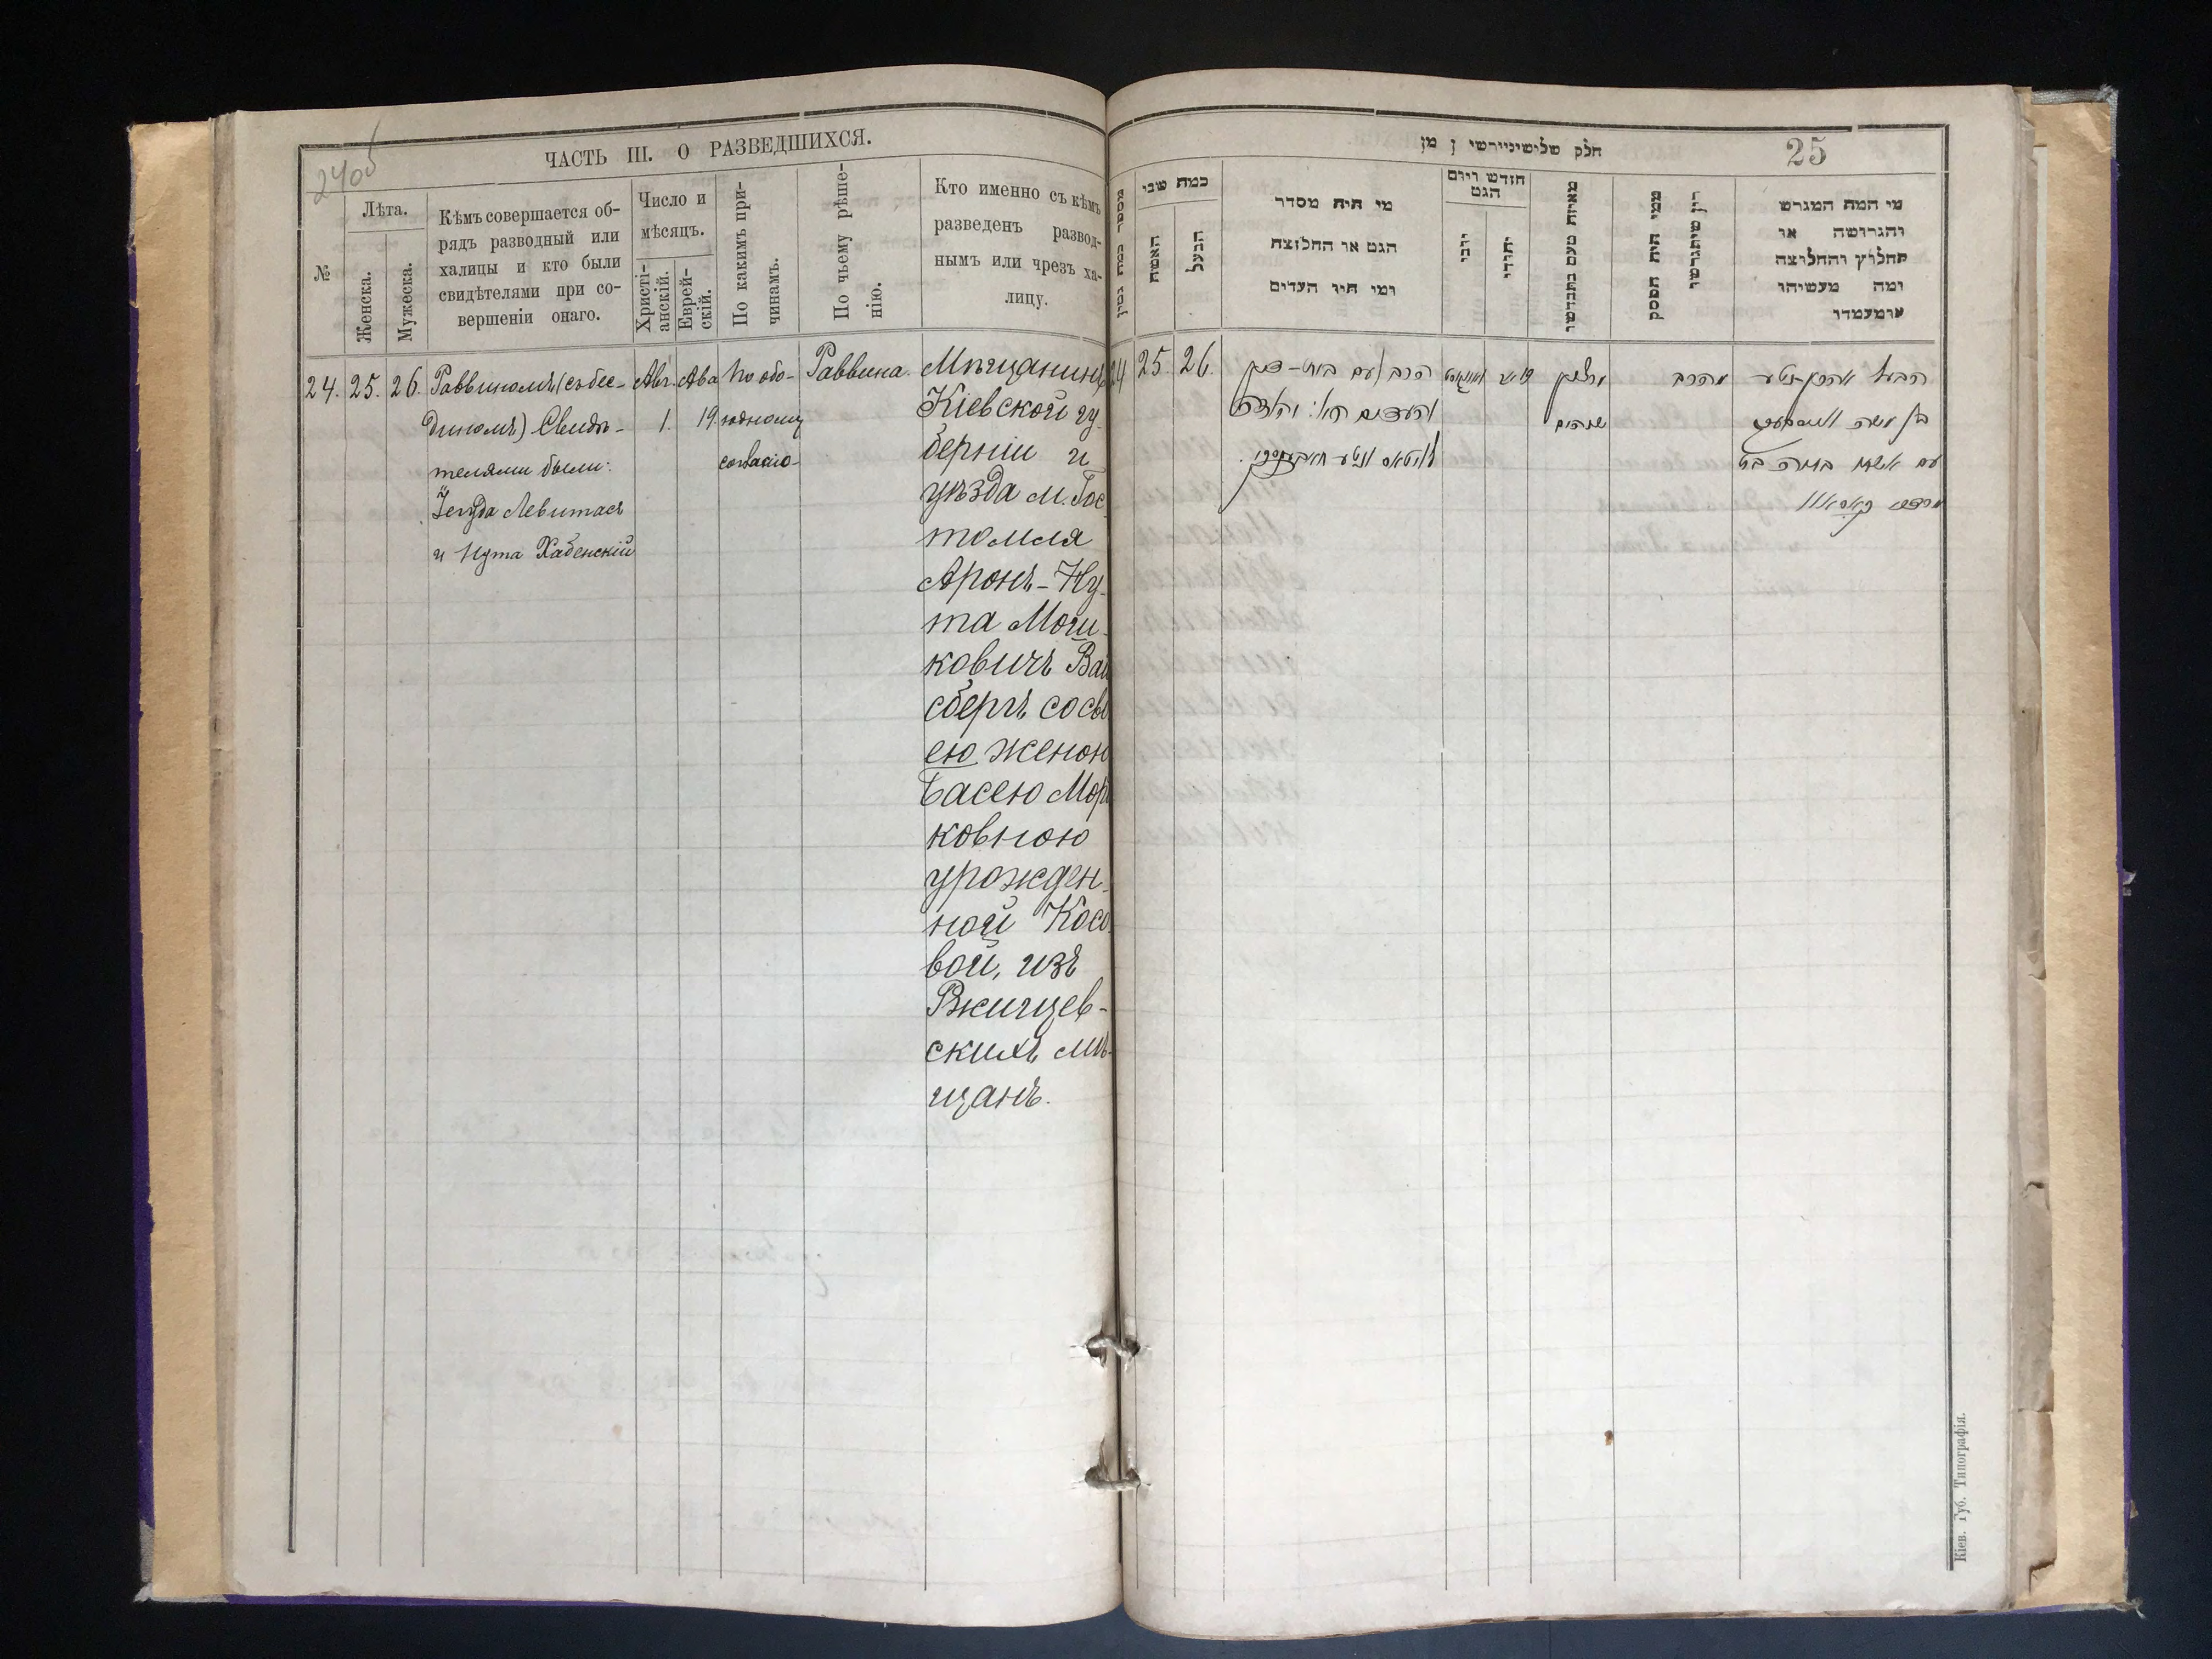 2405
ЧАСТЬ III. О РАЗВЕДШИХСЯ.
№
Лѣта.
Женска.
Мужеска.
Кѣмъ совершается об-
рядъ разводный или
халицы и кто были
свидѣтелями при со-
вершеніи онаго.
Число и
мѣсяцъ.
Христі-
анскій.
Еврей-
скій.
По какимъ при-
чинамъ.
По чьему рѣше-
нію.
Кто именно съ кѣмъ
разведенъ развод-
нымъ или чрезъ ха-
лицу.
24. 25. 26.
Раввиномъ (съ бес-
диномъ) Свидѣ-
телями были:
Іегуда Левитасъ
и Нута Хабенскій
Авг.
1.
Ава
19.
По обо-
юдному
согласію
Раввина.
Мѣщанинъ
Кіевской гу-
берніи и
уѣзда м. Гос
томля
Аронъ-Ну-
та Мош-
ковичъ Вай
сбергъ со сво
ею женою
Басею Мор
ковною
урожден-
ной Косо
вой, изъ
Ржищев-
скихъ мѣ-
щанъ.
25
חלק שלישי
מספר
כמה שני
האשה
הבעל
מי היה מסדר
הגט או החלוצה
ומי היו העדים
חודש ויום
הגט
יהודי
ממי היה הפסק
דין שיתגרשו
מי המה המגרש
והגרושה או
החלוץ והחלוצה
ומה מעשיהו
ומעמדו
24 25. 26.
הרב עם בית-דין
והעדים
שניהם
מהרב
הבעל אהרן-נטע
בן משה
עם אשתו באסיה בת
Кіев. Губ. Типографія.